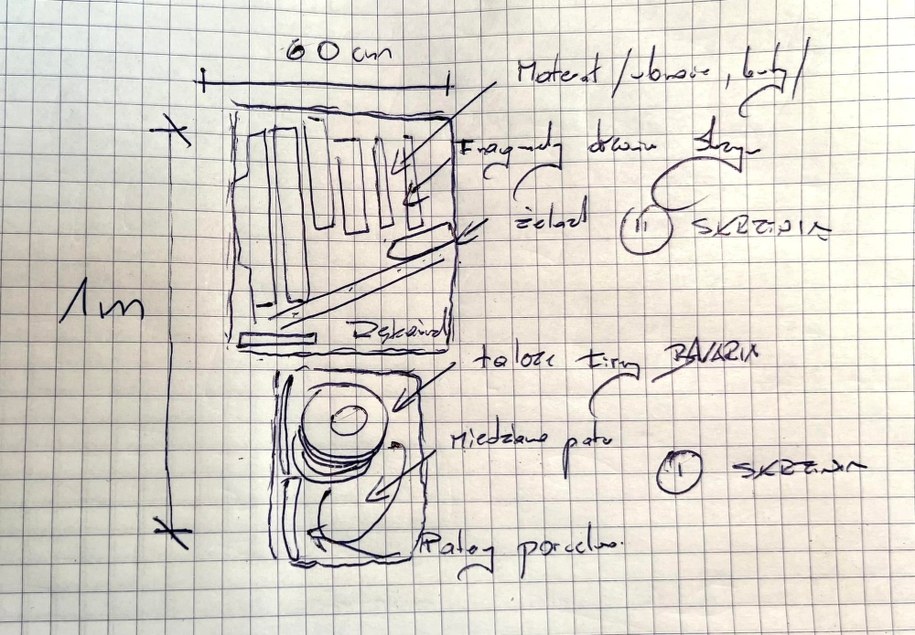 60 cm
Materat /ubranie, buty/
Fragmenty drewna skrzyn
żelazo
II SKRZYNIA
1m
talerze firmy BAVARIA
Miedziana
I SKRZYNIA
Patery porcelan.